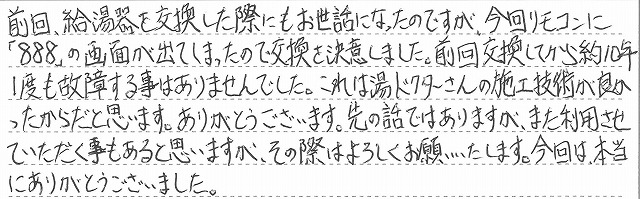 前回、給湯器を交換した際にもお世話になったのですが、今回リモコンに
「888」の画面が出てしまったので交換を決意しました。前回交換してから約10年
1度も故障する事はありませんでした。これは湯ドクターさんの施工技術が良か
ったからだと思います。ありがとうございます。先の話ではありますが、また利用させ
ていただく事もあると思いますが、その際はよろしくお願いいたします。今回は、本当
にありがとうございました。